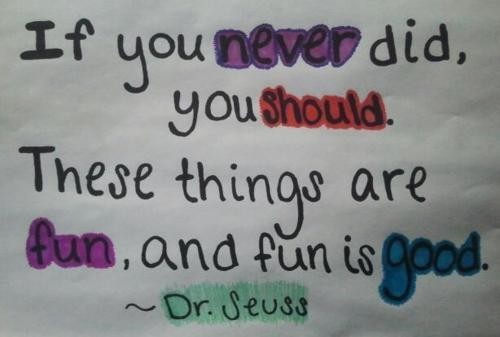 If you never did,
you should.
These things are
fun, and fun is good.
~ Dr. Seuss